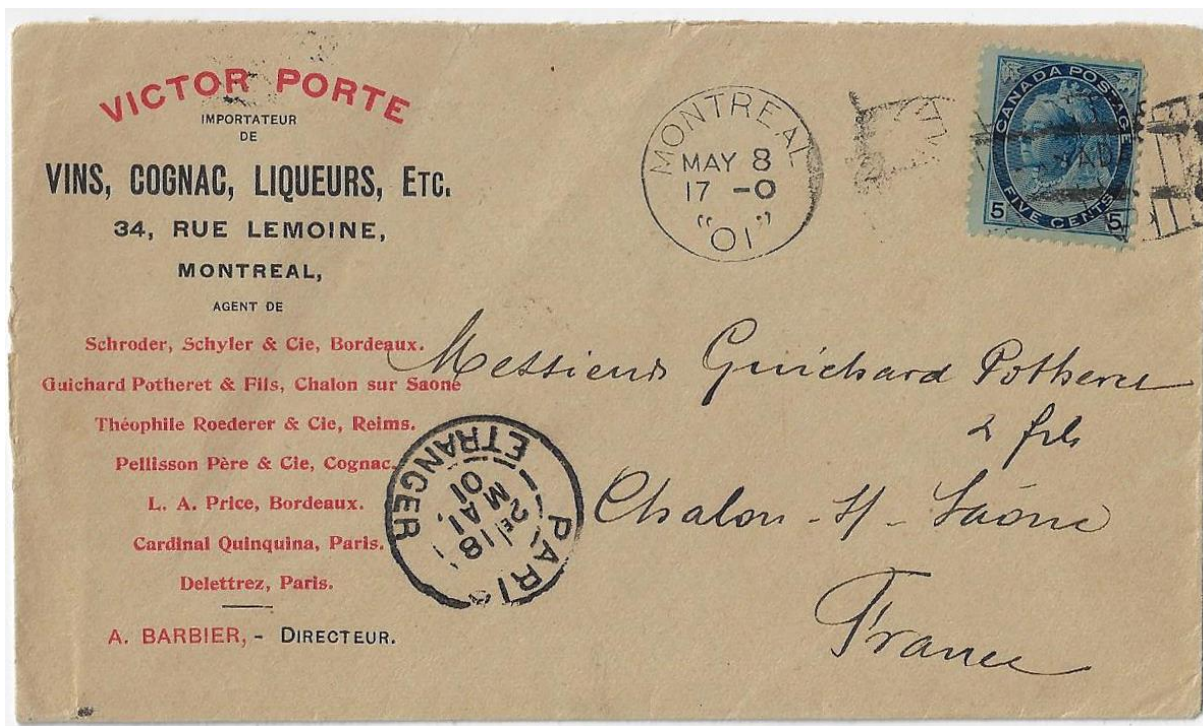 VICTOR PORTE
IMPORTATEUR
DE
VINS, COGNAC, LIQUEURS, ETC.
34, RUE LEMOINE,
MONTREAL,
AGENT DE
Schroder, Schyler & Cie, Bordeaux.
Guichard Potheret & Fils, Chalon sur Saone
Théophile Roederer & Cie, Reims.
Pellisson Père & Cie, Cognac.
L. A. Price, Bordeaux.
Cardinal Quinquina, Paris.
Delettrez, Paris.
A. BARBIER, - DIRECTEUR.
MONTREAL
MAY 8
17 -0
"01"
CANADA POSTAGE
5 FIVE CENTS 5
Messieurs Guichard Potheret
& fils
Chalon - s/ - Saône
France
PARIS
ETRANGER
2E 18
MAI
01